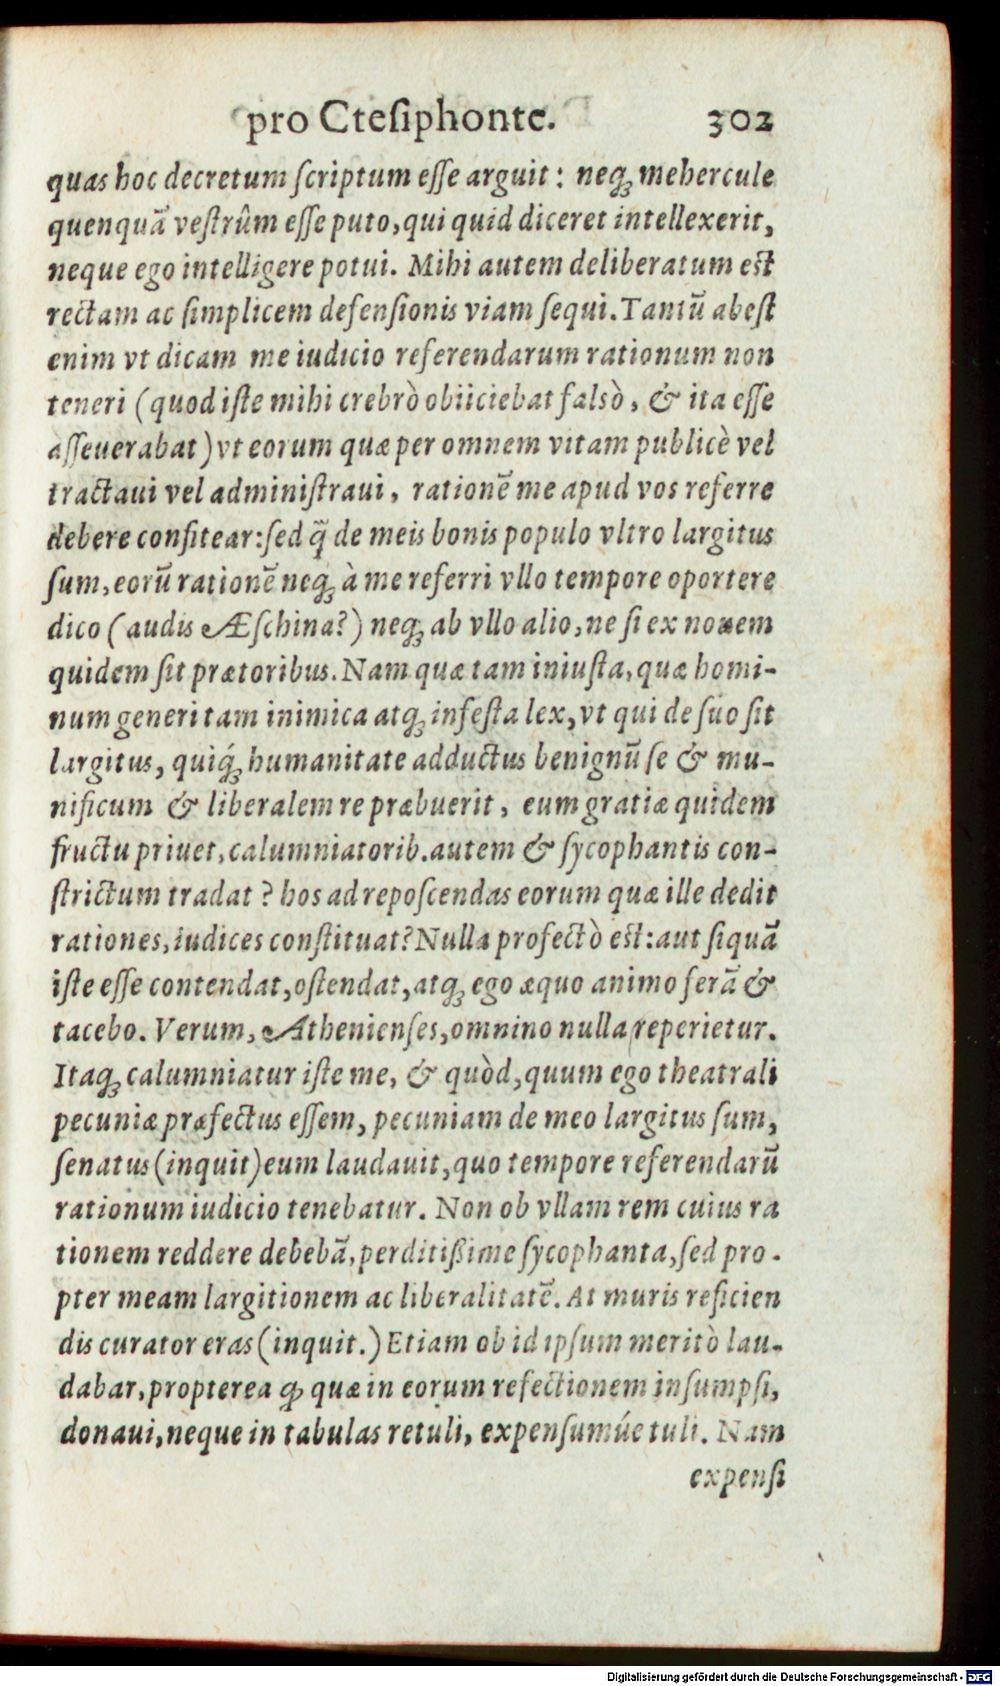 pro Cteſiphonte. 302
quas hoc decretum ſcriptum eſſe arguit: neq; mehercule
quenquã veſtrûm eſſe puto, qui quid diceret intellexerit,
neque ego intelligere potui. Mihi autem deliberatum est
rectam ac ſimplicem defenſionis viam ſequi. Tantũ abeſt
enim vt dicam me iudicio referendarum rationum non
teneri (quod iſte mihi crebrò obiiciebat falsò, & ita eſſe
aſſeuerabat) vt eorum quæ per omnem vitam publicè vel
tractaui vel adminiſtraui, rationẽ me apud vos referre
debere confitear: ſed q̃ de meis bonis populo vltro largitus
ſum, eorũ rationẽ neq; à me referri vllo tempore oportere
dico (audis Æſchina?) neq; ab vllo alio, ne ſi ex nouem
quidem ſit prætoribus. Nam quæ tam iniuſta, quæ homi-
num generi tam inimica atq; infeſta lex, vt qui de ſuo ſit
largitus, quiq́; humanitate adductus benignũ ſe & mu-
nificum & liberalem re præbuerit, eum gratiæ quidem
fructu priuet, calumniatorib. autem & ſycophantis con-
ſtrictum tradat? hos ad repoſcendas eorum quæ ille dedit
rationes, iudices conſtituat? Nulla profectò est: aut ſi quã
iſte eſſe contendat, oſtendat, atq; ego æquo animo ferã &
tacebo. Verum, Athenienſes, omnino nulla reperietur.
Itaq; calumniatur iſte me, & quòd, quum ego theatrali
pecuniæ præfectus eſſem, pecuniam de meo largitus ſum,
ſenatus (inquit) eum laudauit, quo tempore referendarũ
rationum iudicio tenebatur. Non ob vllam rem cuius ra
tionem reddere debebã, perditißime ſycophanta, ſed pro-
pter meam largitionem ac liberalitatẽ. At muris reficien
dis curator eras (inquit.) Etiam ob id ipſum meritò lau-
dabar, propterea ꝙ quæ in eorum refectionem inſumpſi,
donaui, neque in tabulas retuli, expenſumúe tuli. Nam
expenſi
Digitalisierung gefördert durch die Deutsche Forschungsgemeinschaft - DFG